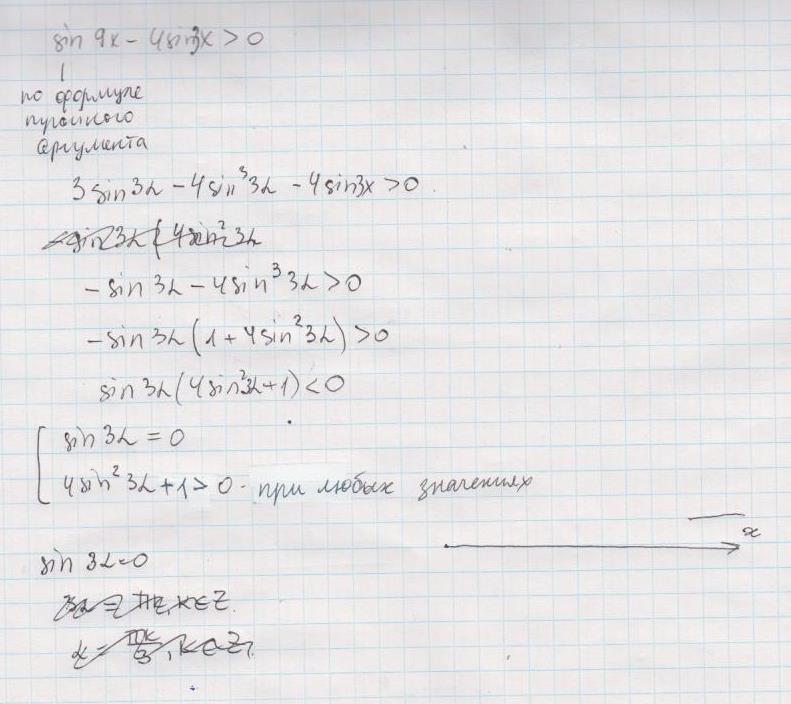 sin 9x - 4sin3x > 0
по формуле
тройного
аргумента
3sin3α - 4sin³3α - 4sin3x > 0
-sin3α(4sin²3α
-sin3α - 4sin³3α > 0
-sin3α(1 + 4sin²3α) > 0
sin3α(4sin²3α + 1) < 0
sin3α = 0
4sin²3α + 1 > 0 - при любых значениях
x
sin3α < 0
3α = πk, k ∈ Z.
α = πk/3, k ∈ Z.